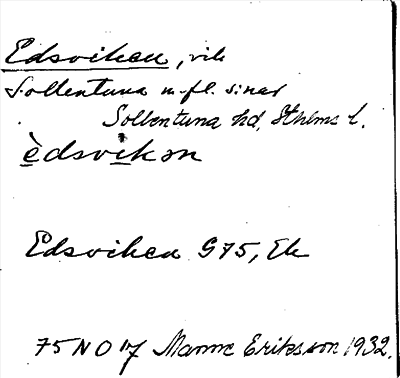 Edsviken, vik
Sollentuna m.fl. snar
Sollentuna hd, Sthlms l.
èdsvikən
Edsviken G75, Ek
75 NO 17 Manne Eriksson 1932.